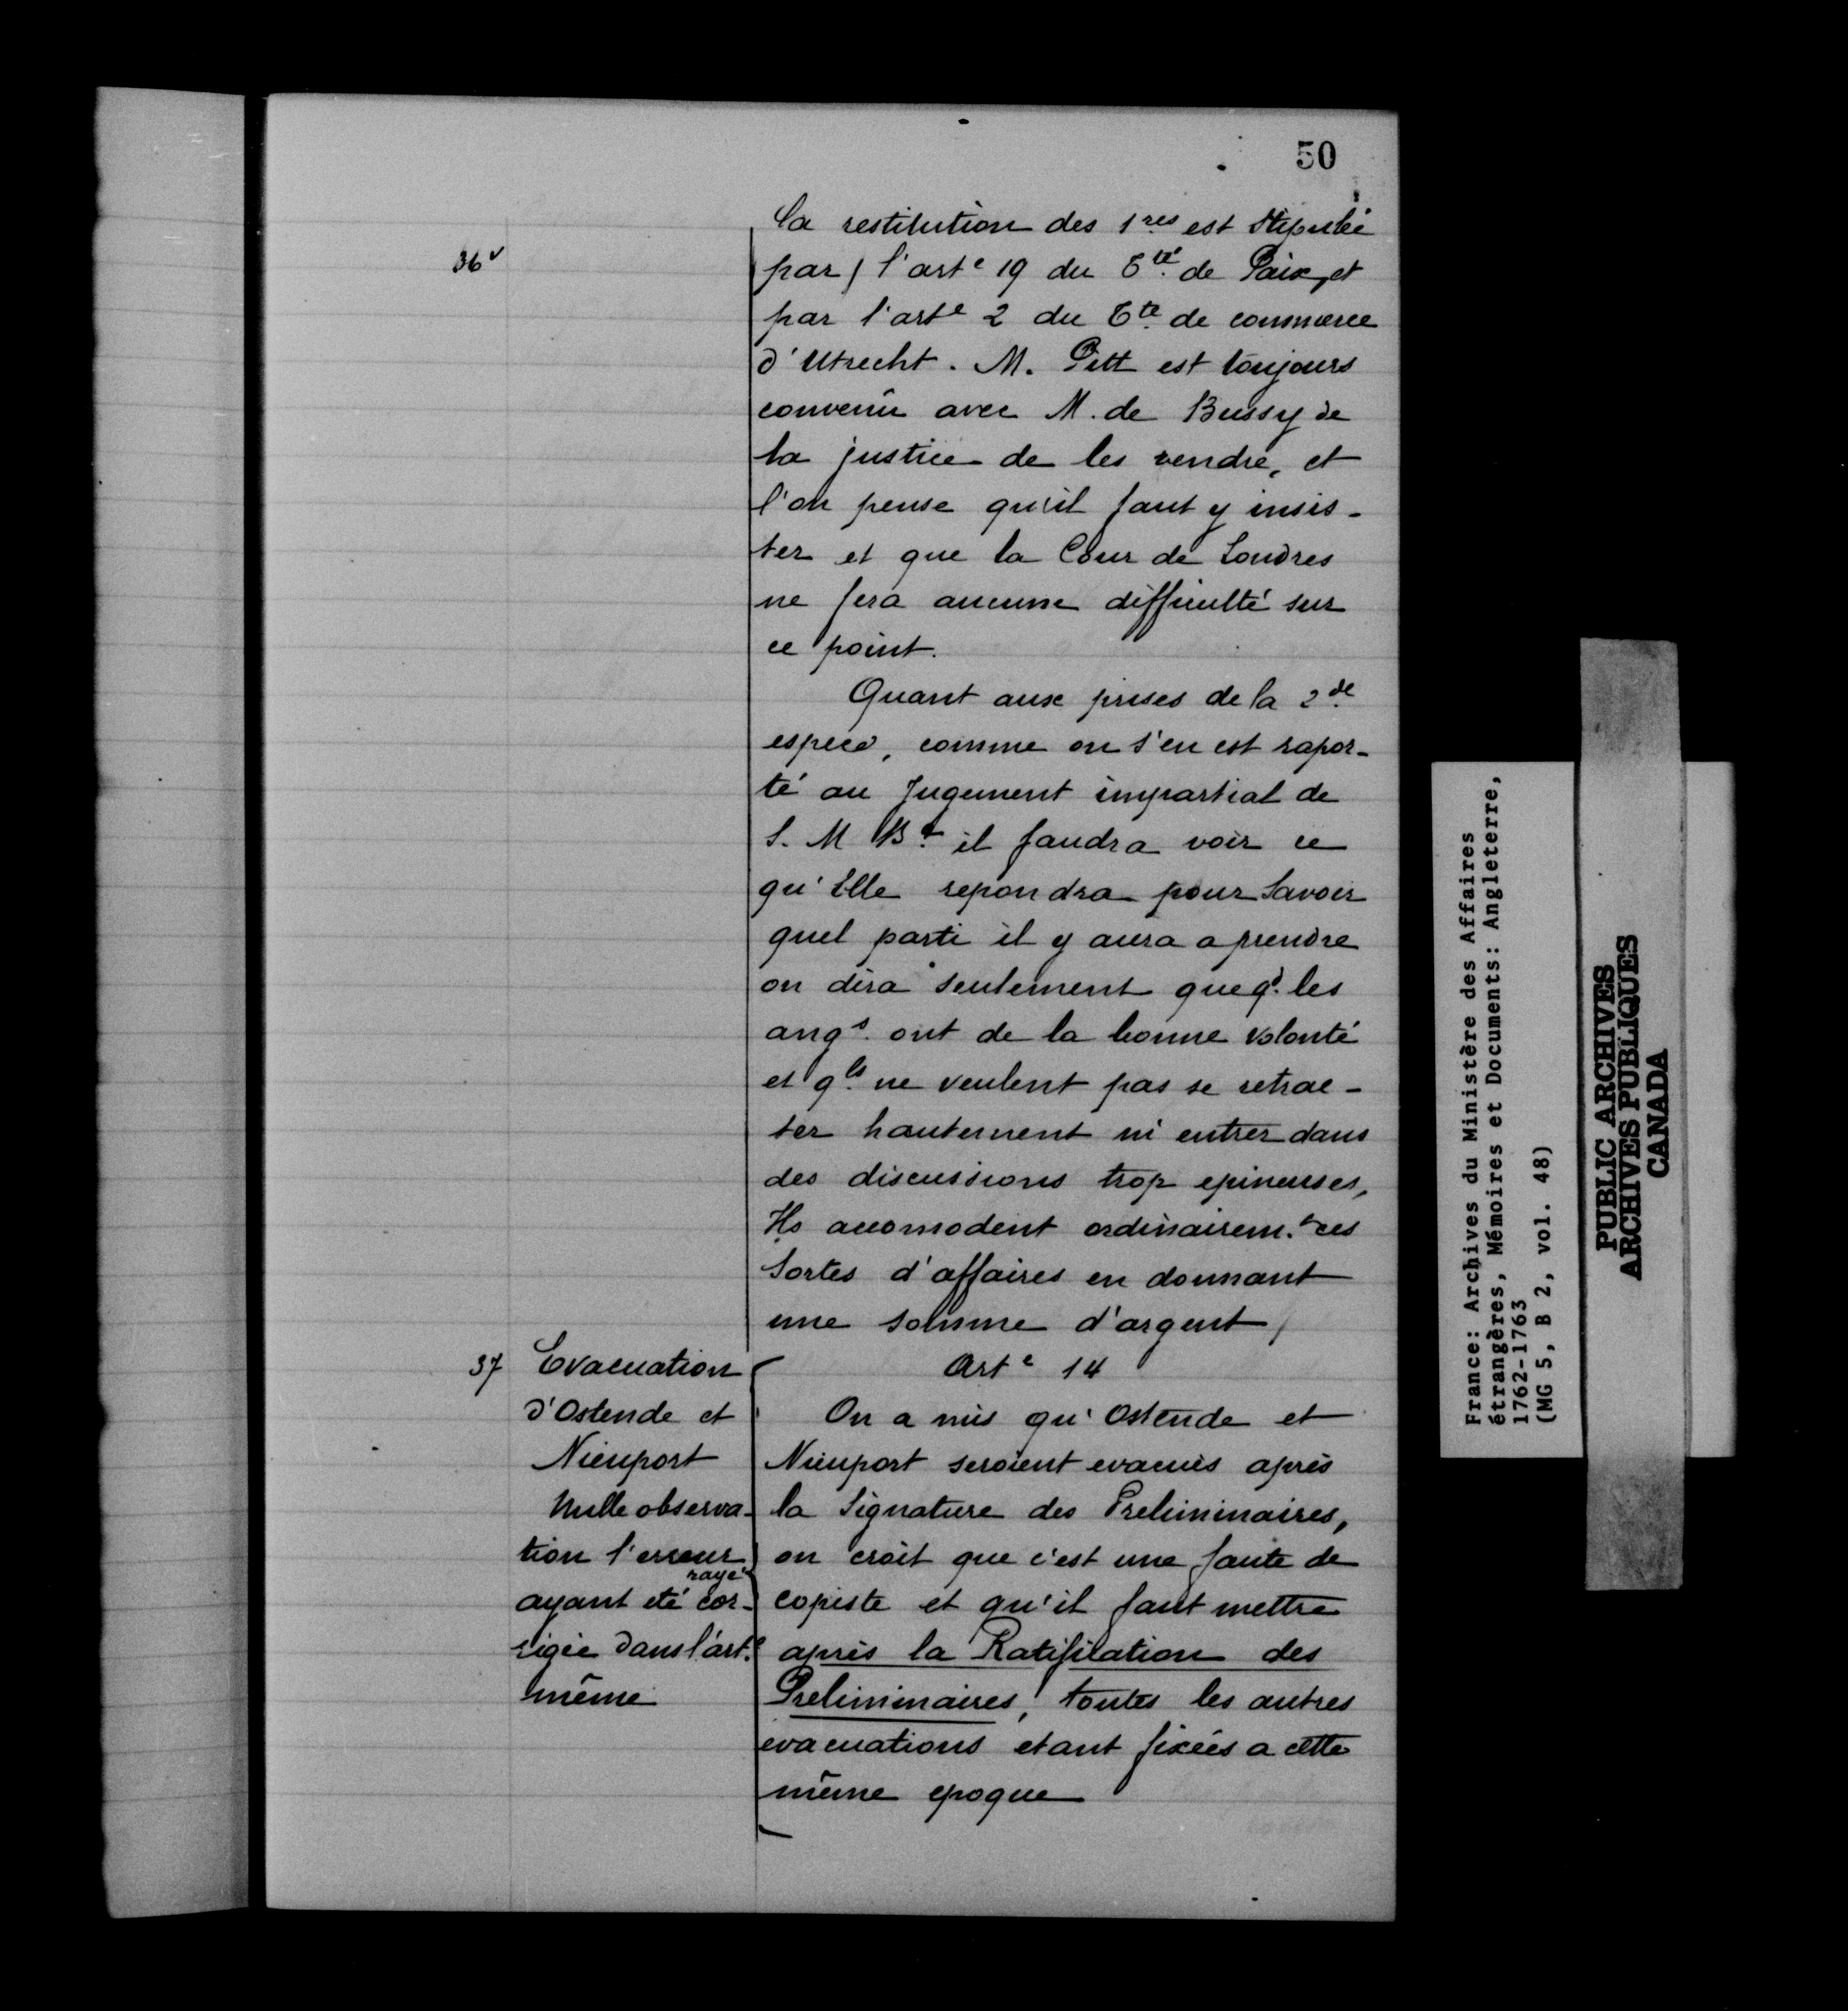 50
la restitution des 1res est Stipulée
36v
par / l'arte 19 du Tté de Paix, et
par l'arte 2 du Tté de commerce
d'Utrecht. M. Pitt est toujours
convenu avec M. de Bussy de
la justice de les rendre, et
l'on pense qu'il faut y insis-
ter et que la Cour de Londres
ne fera aucune difficulté sur
ce point.
Quant aux prises de la 2de
espece, comme on s'en est rapor-
té au Jugement impartial de
S. M Bt il faudra voir ce
qu'Elle repondra pour Savoir
quel parti il y aura a prendre
on dira seulement que qd les
angs ont de la bonne volonté
et qls ne veulent pas se retrac-
ter hautement ni entrer dans
des discussions trop epineuses,
Ils accomodent ordinairemt ces
Sortes d'affaires en donnant
une somme d'argent /
37 Evacuation
d'Ostende et
Nieuport
Nulle observa-
tion l'erreur
rayé
ayant eté cor-
rigée dans l'arte
même
Arte 14
On a mis qu'Ostende et
Nieuport seroient evacués après
la Signature des Preliminaires,
on croit que c'est une faute de
copiste et qu'il faut mettre
après la Ratifilation des
Preliminaires, toutes les autres
evacuations etant fixées a cette
même epoque
France: Archives du Ministère des Affaires
étrangères, Mémoires et Documents: Angleterre,
1762-1763
(MG 5, B 2, vol. 48)
PUBLIC ARCHIVES
ARCHIVES PUBLIQUES
CANADA